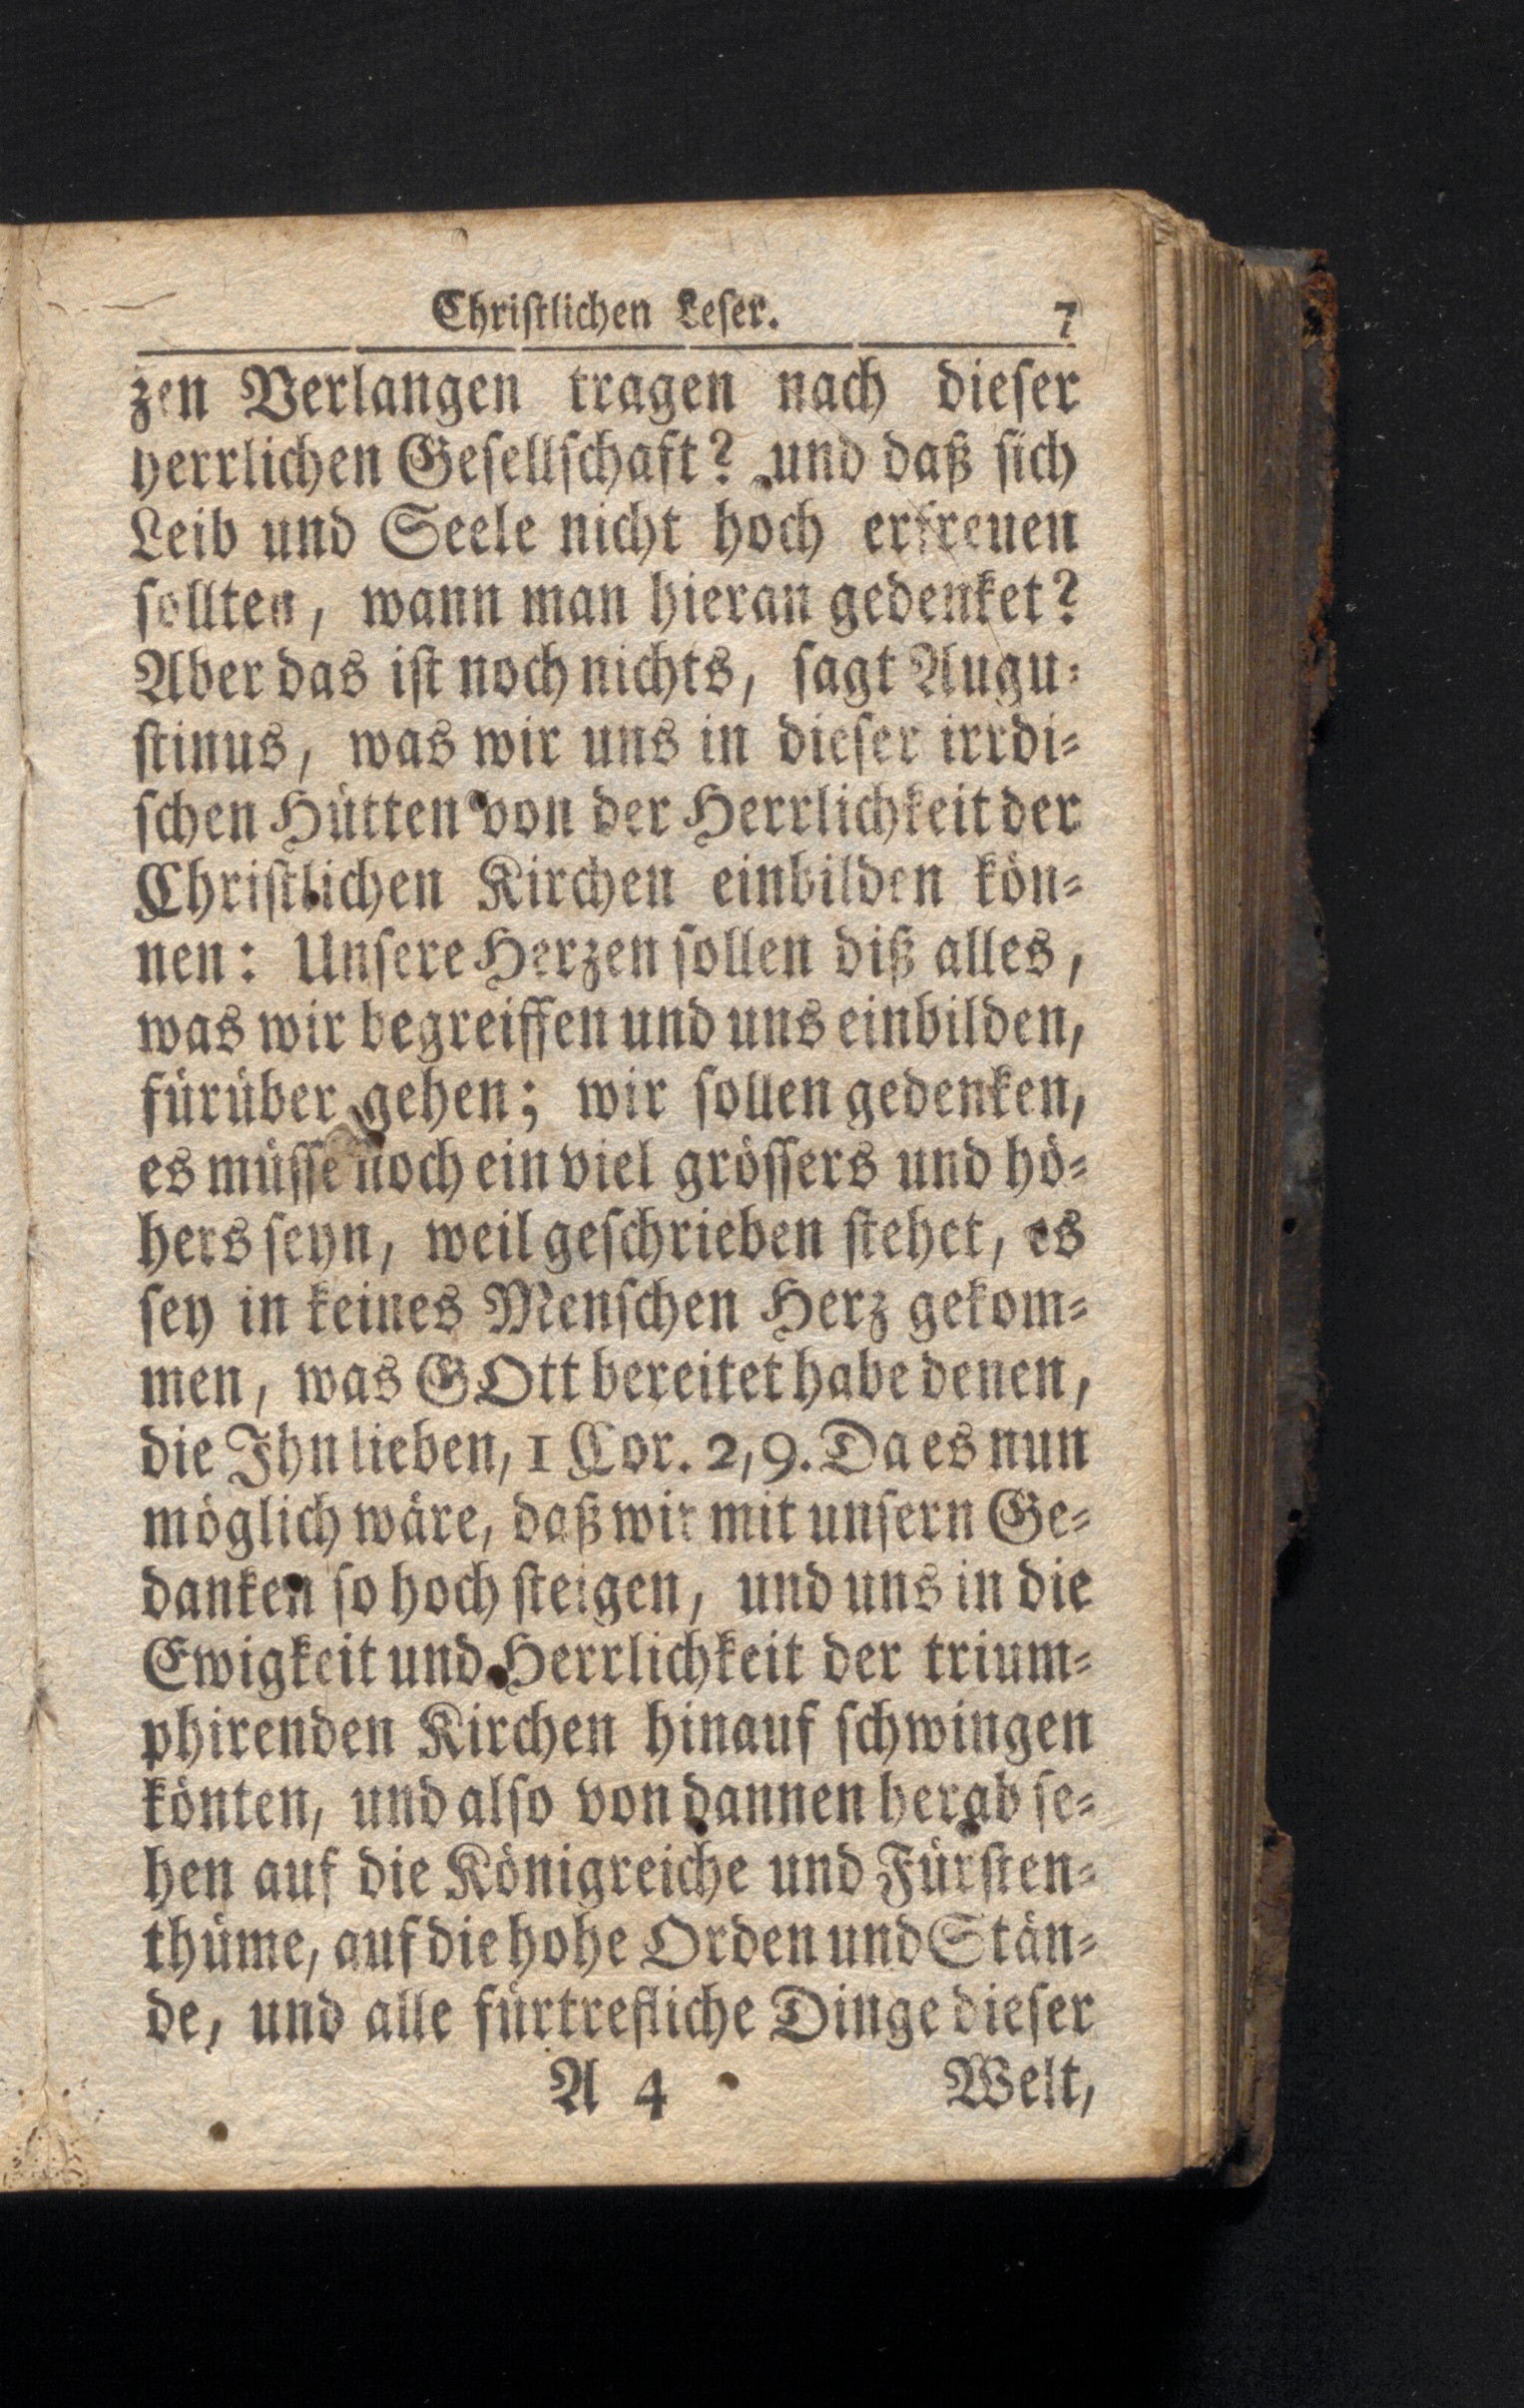 Christlichen Leser. 7
zen Verlangen tragen nach dieser
herrlichen Gesellschaft? und daß sich
Leib und Seele nicht hoch erfreuen
sollten, wann man hieran gedenket?
Aber das ist noch nichts, sagt Augu-
stinus, was wir uns in dieser irrdi-
schen Hütten von der Herrlichkeit der
Christlichen Kirchen einbilden kön-
nen: Unsere Herzen sollen diß alles,
was wir begreiffen und uns einbilden,
fürüber gehen; wir sollen gedenken,
es müsse noch ein viel grössers und hö-
hers seyn, weil geschrieben stehet, es
sey in keines Menschen Herz gekom-
men, was GOtt bereitet habe denen,
die Ihn lieben, 1 Cor. 2, 9. Da es nun
möglich wäre, daß wir mit unsern Ge-
danken so hoch steigen, und uns in die
Ewigkeit und Herrlichkeit der trium-
phirenden Kirchen hinauf schwingen
könten, und also von dannen herab se-
hen auf die Königreiche und Fürsten-
thüme, auf die hohe Orden und Stän-
de, und alle fürtrefliche Dinge dieser
A 4 Welt,